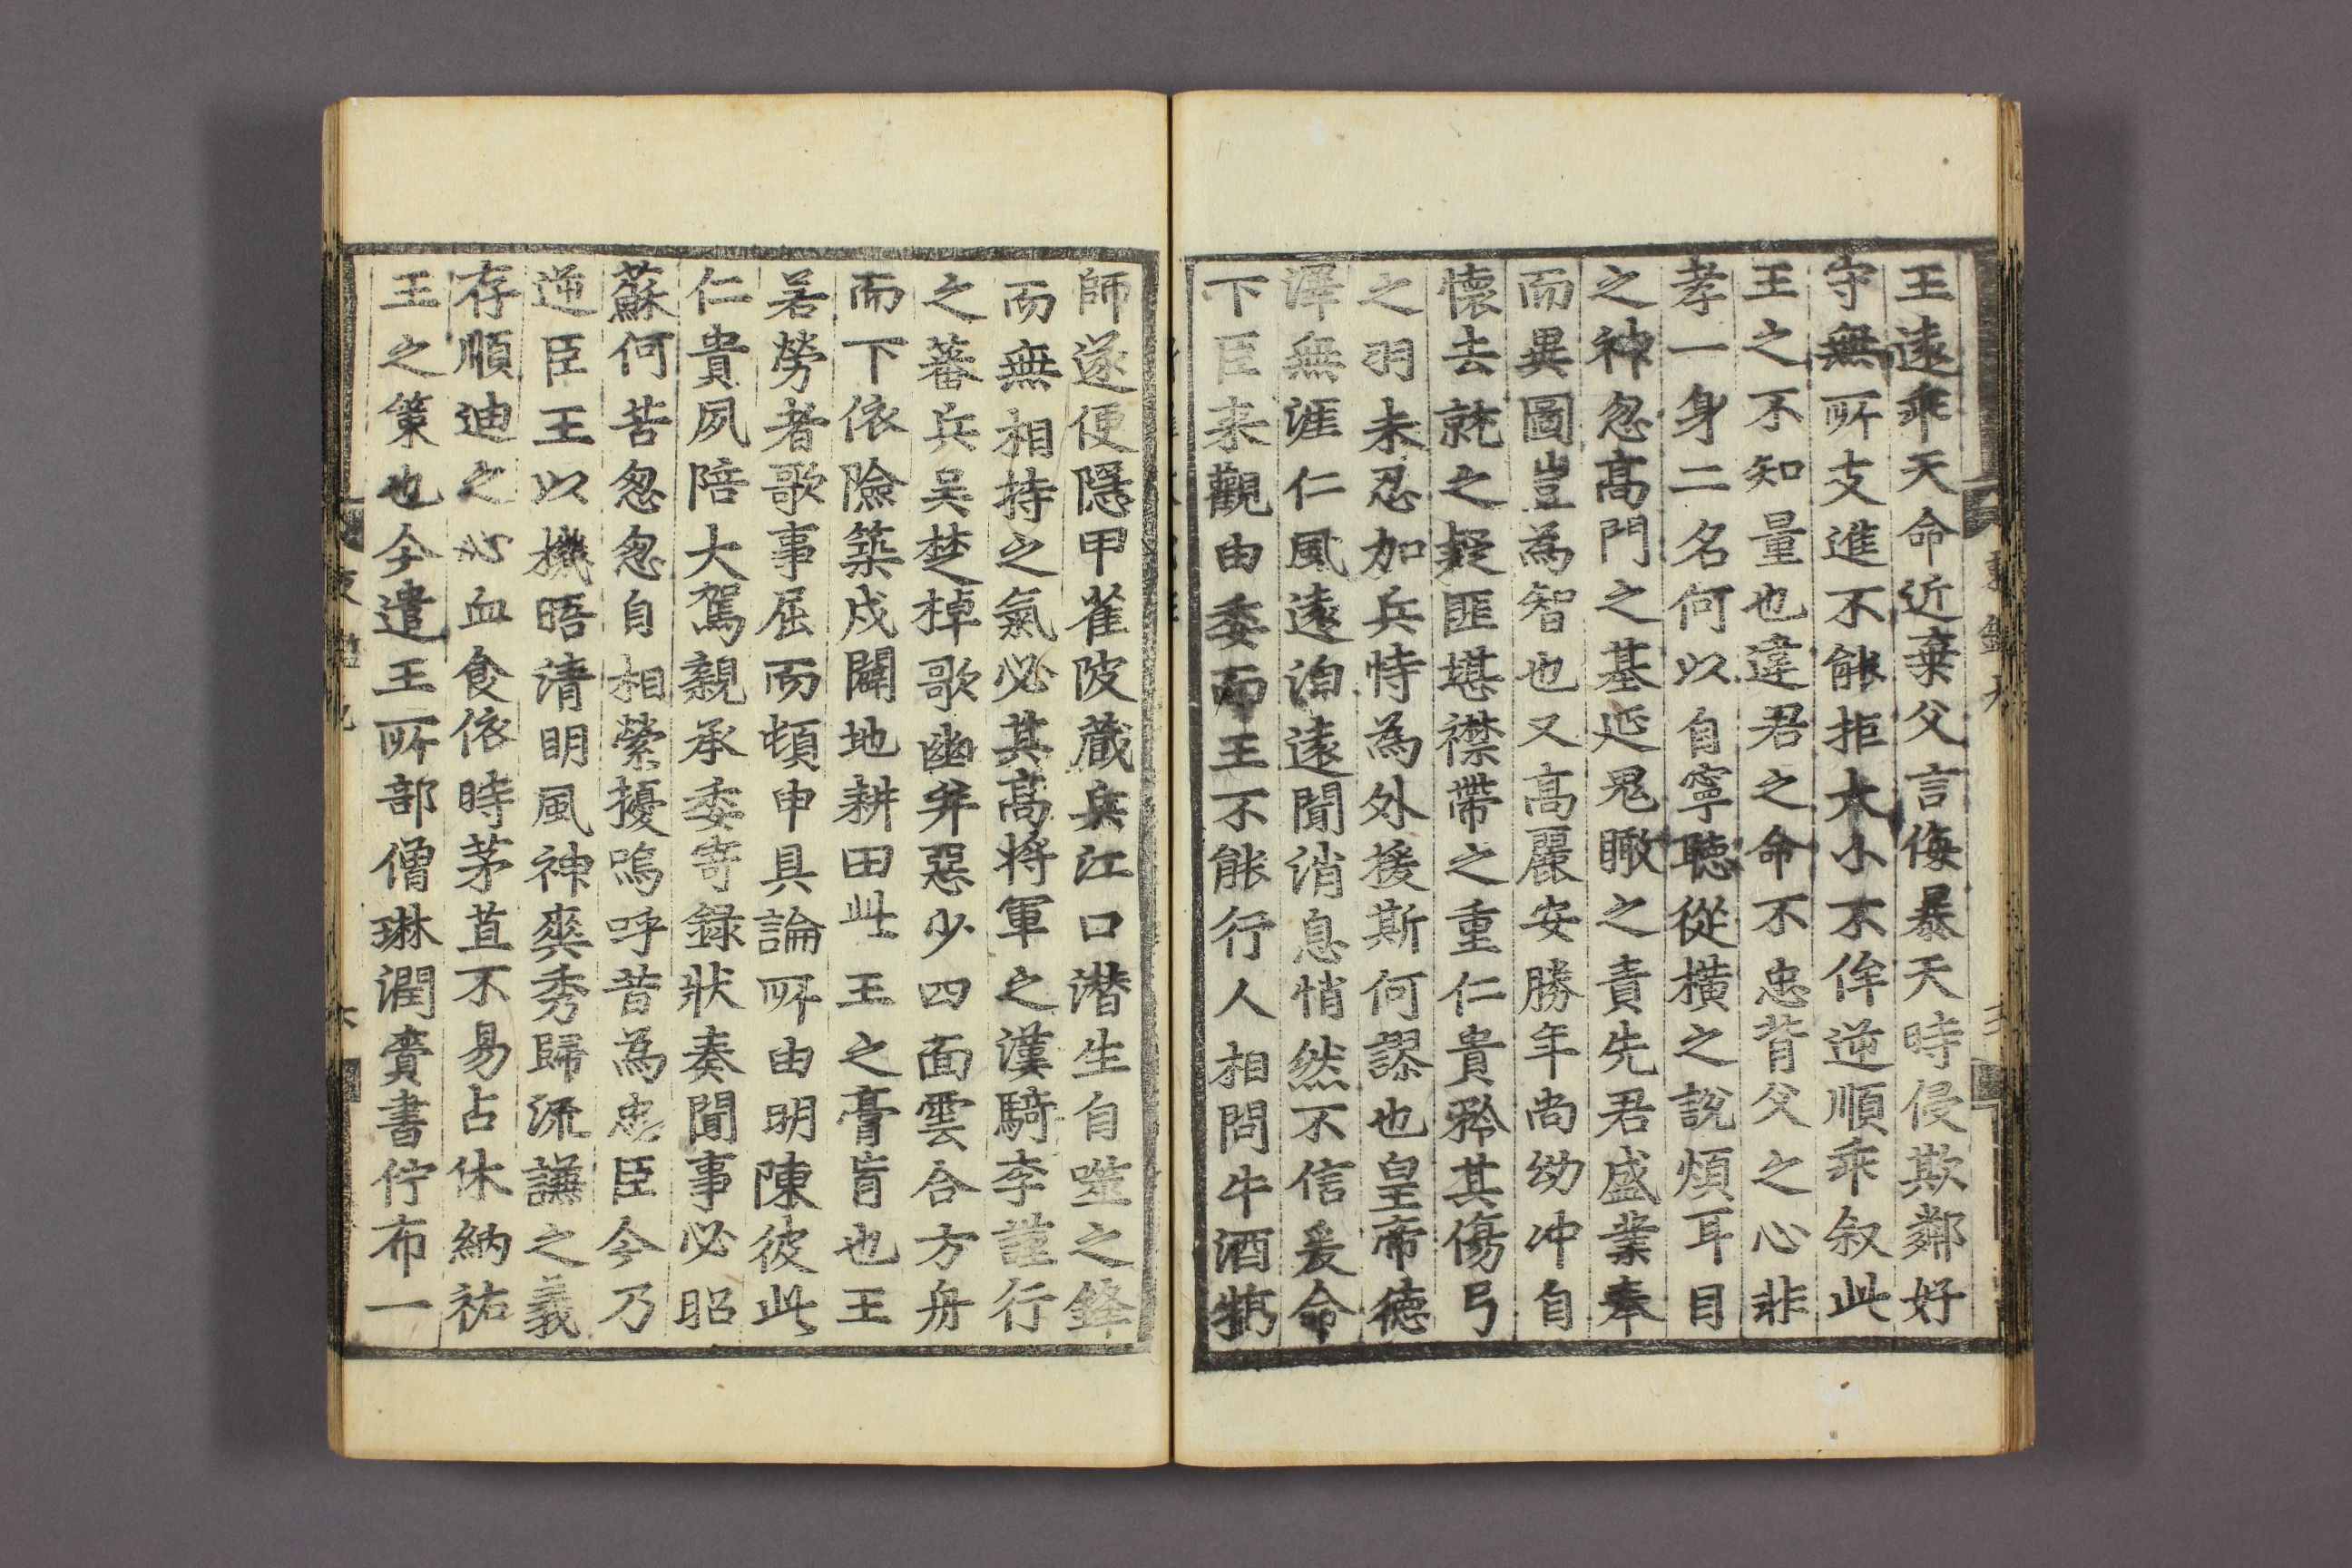 王遠乖天命近棄父言侮暴天時侵欺鄰好
守無所支進不能拒大小不侔逆順乖叙此
王之不知量也違君之命不忠背父之心非
孝一身二名何以自寧聽從橫之說煩耳目
之神忽高門之基延鬼瞰之責先君盛業奉
而異圖豈為智也又高麗安勝年尚幼冲自
懷去就之疑匪堪襟帶之重仁貴矜其傷弓
之羽未忍加兵恃為外援斯何謬也皇帝德
澤無涯仁風遠洎遠聞消息悄然不信爰命
下臣来觀由委而王不能行人相問牛酒犒
師遂便隱甲雀陂蔵兵江口潜生自噬之鋒
而無相持之氣必其高將軍之漢騎李謹行
之蕃兵吳楚棹歌幽并惡少四面雲合方舟
而下依險築戍闢地耕田此王之膏肓也王
若勞者歌事屈而頓申具論所由明陳彼此
仁貴夙陪大駕親承委寄録狀奏聞事必昭
蘇何苦忽忽自相縈擾嗚呼昔為忠臣今乃
逆臣王以機晤清明風神爽秀歸流謙之義
存順迪之心血食依時茅苴不易占休納祐
王之策也今遣王所部僧琳潤賫書佇布一